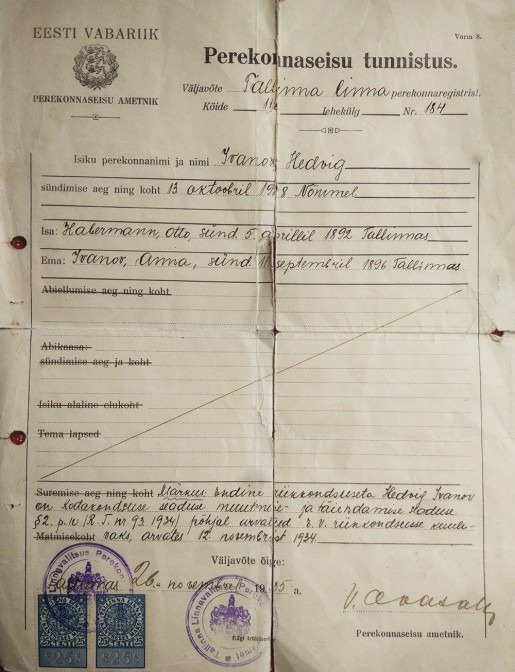 EESTI VABARIIK
Vorm 8.
Perekonnaseisu tunnistus.
PEREKONNASEISU AMETNIK
Väljavõte Tallinna linna perekonnaregistrist.
Köide lehekülg Nr. 184
Isiku perekonnanimi ja nimi Ivanov Hedvig
sündimise aeg ning koht 13 oktoobril 1918 Nõmmel
Isa: Habermann, Otto, sünd 5. aprillil 1892 Tallinnas
Ema: Ivanov, Anna, sünd 11 septembril 1896 Tallinnas
Abiellumise aeg ning koht
Abikaasa:
sündimise aeg ja koht
Isiku alaline elukoht
Tema lapsed
Suremise aeg ning koht Märkus: Endine riikkondsuseta Hedvig Ivanov
on kodakondsuse seaduse muutmise- ja täiendamise seaduse
§2. p. (R.T. nr 93 1934) põhjal arvatud E.V. riikkondsuse kuulu-
Matmisekoht vaks, arvates 12. novembrist 1934.
Väljavõte õige:
Tallinnas 26. novembril 1935 a.
Perekonnaseisu ametnik.
Tallinna Linnavalitsus Perekon
SENTI
25
SENTI
25